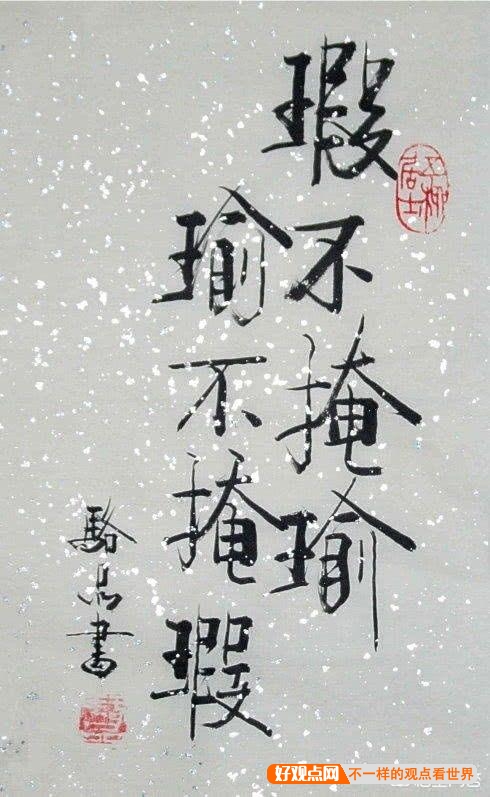 瑕不掩瑜
瑜不掩瑕
駱品書
五柳居士
好观点网 不一样的观点看世界